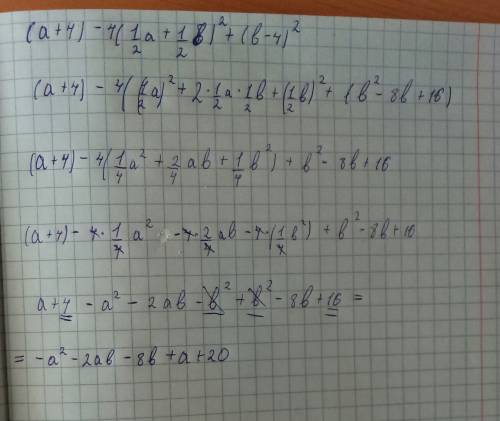 (a+4) - 4(1/2 a + 1/2 в)² + (в-4)²
(a+4) - 4((1/2 a)² + 2·1/2 a·1/2 в + (1/2 в)² + (в² - 8в + 16)
(a+4) - 4(1/4 a² + 2/4 aв + 1/4 в²) + в² - 8в + 16
(a+4) - 4·1/4 a² - 4·2/4 aв - 4·(1/4 в²) + в² - 8в + 16
a + 4 - a² - 2aв - в² + в² - 8в + 16 =
= -a² - 2aв - 8в + a + 20